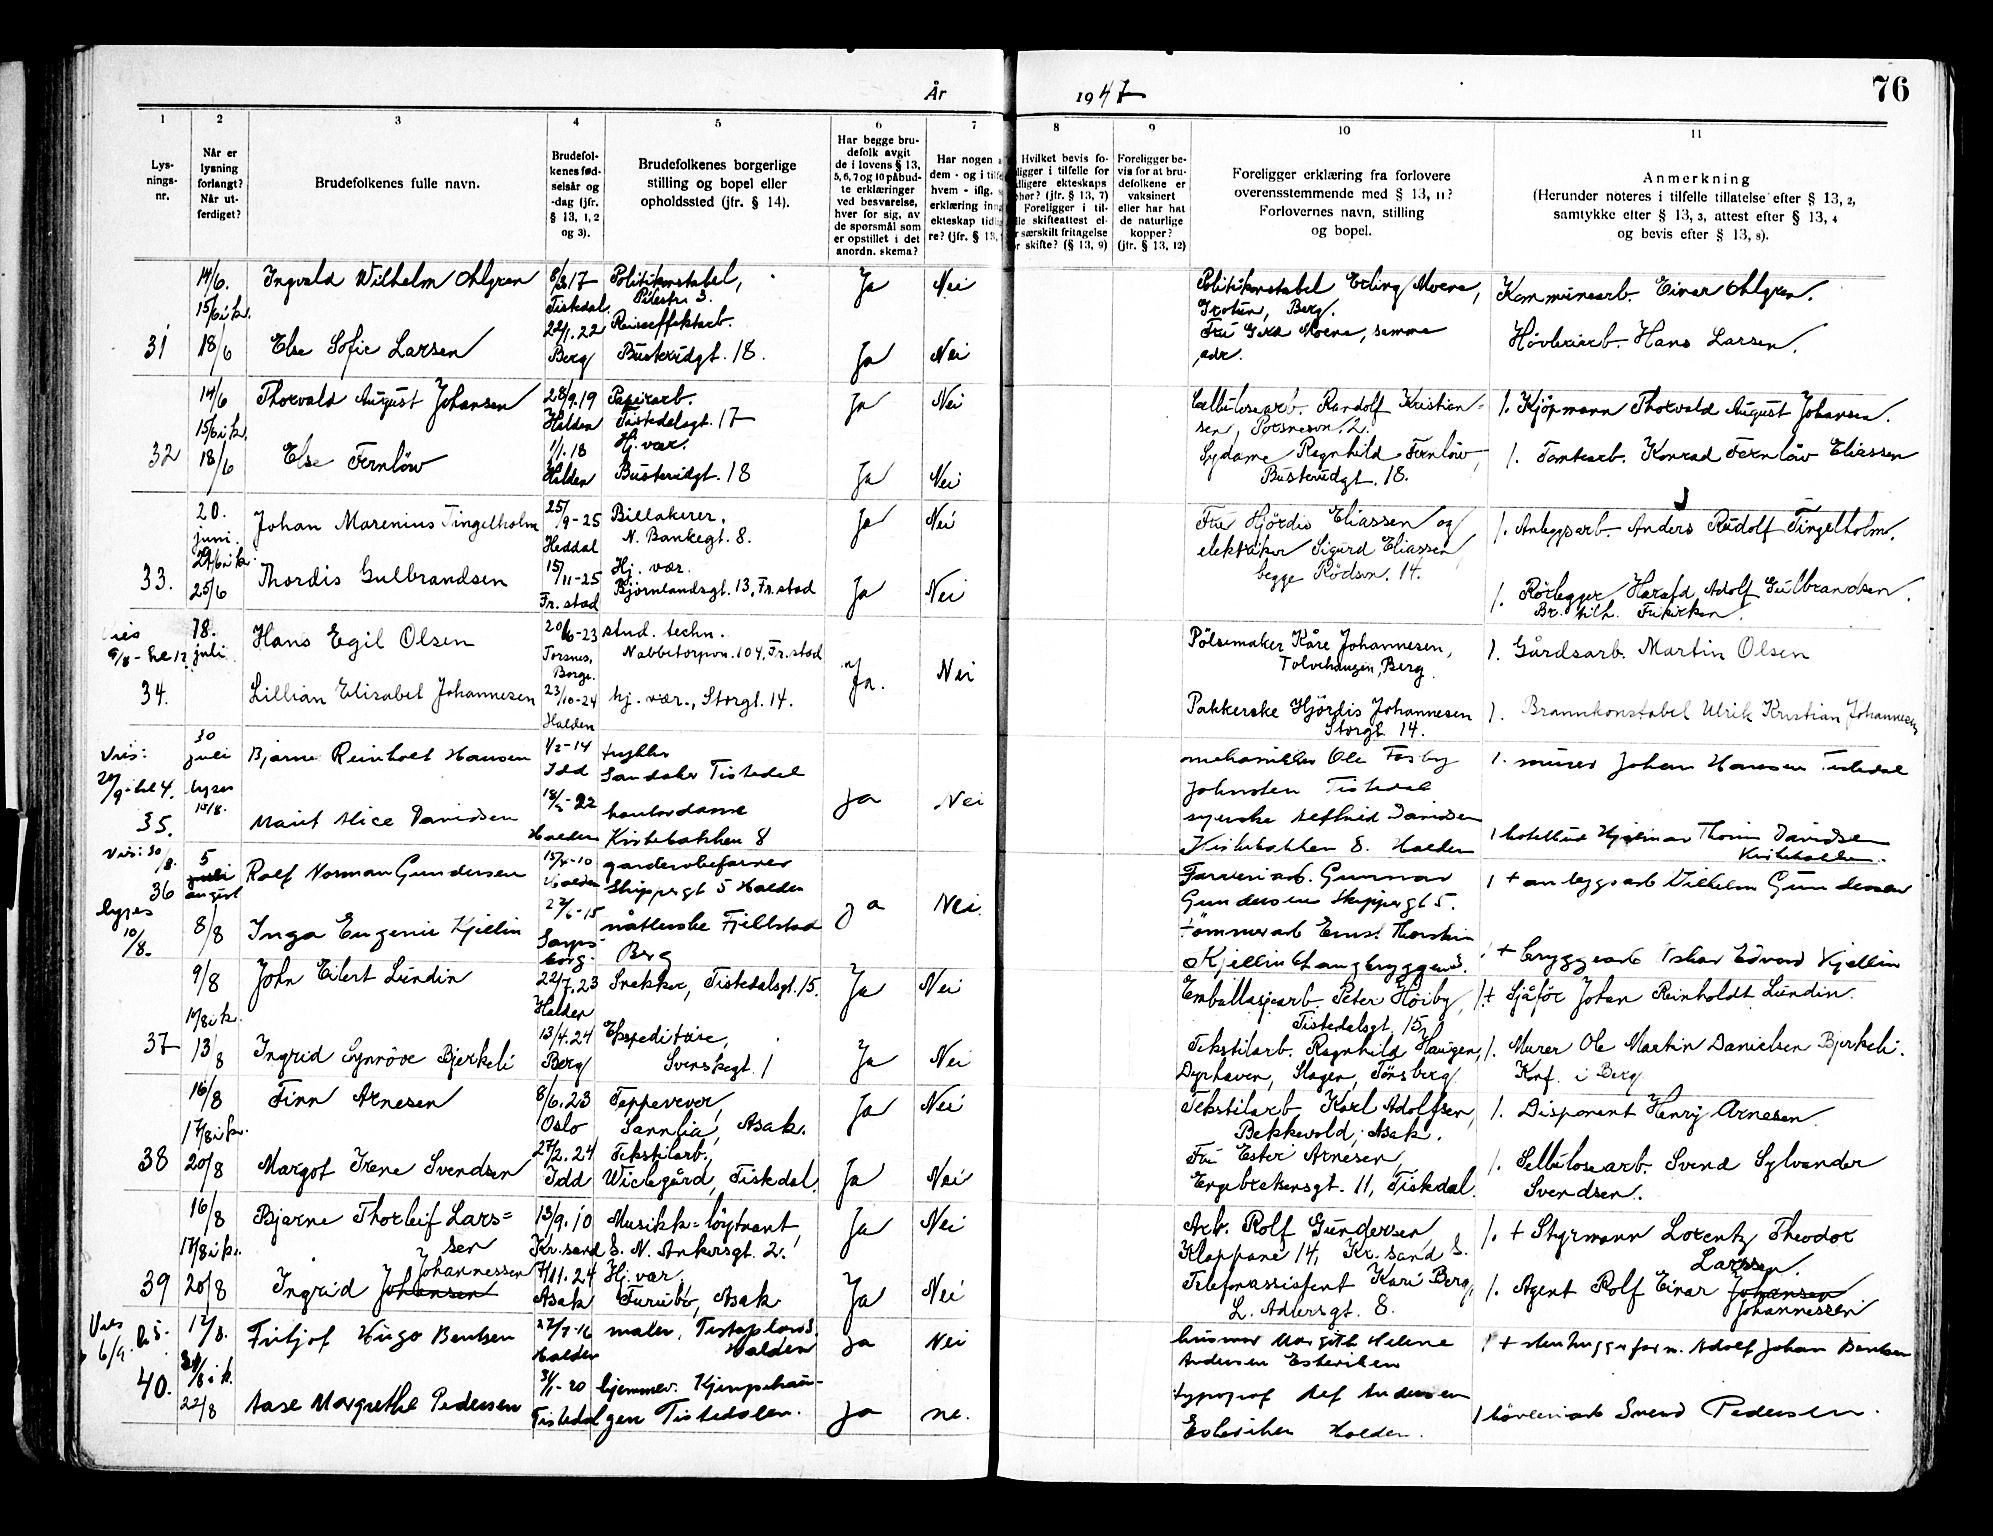 76
År 1947
1 2 3 4 5 6 7 8 9 10 11
Lys-
nings-
nr.
Når er
lysning
forlangt?
Når ut-
ferdiget?
Brudefolkenes fulle navn.
Brudefol-
kenes fød-
selsår og
-dag (jfr.
§ 13, 1, 2
og 3).
Brudefolkenes borgerlige
stilling og bopel eller
opholdssted (jfr. § 14).
Har begge bru-
defolk avgit
de i lovens § 13,
5, 6, 7 og 10 påbud-
te erklæringer
ved besvarelse,
hver for sig, av
de spørsmål som
er opstillet i det
anordn. skema?
Har nogen a
dem - og i tilfe
hvem - iflg. s
erklæring inng
ekteskap tidli
re? (jfr. § 13,
Hvilket bevis fo-
ligger i tilfelle for
dligere ekteskaps
phør? (jfr. § 13, 7)
Foreligger i til-
lle skifteattest el-
r særskilt fritagelse
or skifte? (§ 13, 9)
Foreligger be-
vis for at bru-
defolkene er
vaksinert
eller har hat
de naturlige
kopper?
(jfr. § 13, 12)
Foreligger erklæring fra forlovere
overensstemmende med § 13, 11?
Forlovernes navn, stilling
og bopel.
Anmerkning
(Herunder noteres i tilfelle tillatelse efter § 13, 2,
samtykke efter § 13, 3, attest efter § 13, 4
og bevis efter § 13, 8).
31
14/6.
15/6 i k.
18/6
Ingvald Wilhelm Ohlgren
8/3.17
Tistedal
Politikonstabel,
Pilestr. 3.
Ja Nei
Politikonstabel Erling Moene,
Grotun, Berg.
Kommunearb. Einar Ohlgren.
Else Sofie Larsen
22/1.22
Berg
Reiseeffektarb.
Busterudgt. 18.
Ja Nei
Fru Gerd Moene, samme
adr.
Høvleriarb. Hans Larsen.
32
14/6
15/6 i k.
18/6
Thorvald August Johansen
28/9.19
Halden
Papirarb.
Tistedalsgt. 17
Ja Nei
Cellulosearb. Randolf Kristian-
sen, Porsnesvn. 2.
/. Kjøpmann Thorvald August Johansen.
Else Fernlöw
1/1.18
Halden
Hj. vær.
Busterudgt. 18
Ja Nei
Sydame Ragnhild Fernlöw,
Busterudgt. 18.
/. Tomtearb. Konrad Fernlöw Eliassen
33.
20.
juni.
25/6
Johan Marenius Tingelholm
25/9-25
Heddal
Billakerer,
N. Bankegt. 8.
Ja Nei
Fru Hjördis Eliassen og
elektriker Sigurd Eliassen,
begge Rødsvn. 14.
/. Anleggsarb. Anders Rudolf Tingelholm.
Thordis Gulbrandsen
15/11-25
Fr.stad
Hj. vær.
Bjørnlandsgt. 13, Fr.stad
Ja Nei
/. Rörlegger Harald Adolf Gulbrandsen.
Br. tilh. Frikirken.
34.
18.
juli
Hans Egil Olsen
20/6-23
Torsnes,
Borge.
stud. techn.
Nabbetorpvn. 104, Fr.stad
Ja. Nei
Pölsemaker Kåre Johannesen,
Tolvehaugen, Berg.
/. Gårdsarb. Martin Olsen
Lillian Elisabet Johannesen
23/10-24
Halden
hj. vær., Storgt. 14.
Pakkerske Hjördis Johannesen
Storgt. 14.
/. Brannkonstabel Ulrik Kristian Johannesen
Vies:
20/9 - kl 4.
35.
30
juli
lyses
Bjarne Reinholt Hansen
1/2-14
Idd
Tistedal
ja Nei
Ole Fosby
Johnsten Tistedal
/. murer Johan Hansen Tistedal
Marit Alice Davidsen
Halden
kontordame
Kirkebakken 8
syerske Davidsen
Kirkebakken 8. Halden
Hjalmar Thorin Davidsen
Vies: 30/8.
36
lyses
10/8.
5
juli
august
8/8
Rolf Norman Gundersen
Halden
garderobefarver
Skippergt 5 Halden
ja Nei.
Farveriarb. Gunnar
Gundersen Skippergt 5.
/ + anleggsarb Vilhelm Gundersen
Inga Eugenie Kjellin
27/6-15
Sarps-
borg.
nåtlerske Fjellstad
Berg
tömmerarb Ernst Thorstein
Kjellin Langbryggens.
/ + bryggearb Oskar Edvard Kjellin
37
9/8
10/8 i k.
13/8
John Eilert Lundin
22/7.23
Halden
Snekker, Tistedalsgt. 15.
Ja Nei
Emballasjearb. Peter Höiby,
Tistedalsgt. 15.
/. + Sjåför Johan Reinholdt Lundin.
Ingrid Synnöve Bjerkeli
13/4.24
Berg
Ekspeditrise,
Svenskegt. 1
Ja Nei
Tekstilarb. Ragnhild Haugen,
Dyrhaven, Slagen, Tönsberg.
/. Murer Ole Martin Danielsen Bjerkeli.
Konf. i Berg
38
16/8
17/8 i k.
20/8
Finn Arnesen
8/6.23
Oslo
Teppevever,
Sannlia, Asak.
Ja Nei
Tekstilarb. Karl Adolfsen,
Bekkevold, Asak.
/. Disponent Henry Arnesen.
Margot Irene Svendsen
27/2.24
Idd
Tekstilarb.,
Wielegård, Tistedal.
Ja Nei
Fru Ester Arnesen,
Engebretsensgt. 11, Tistedal.
/. Sellulosearb. Svend Sylvander
Svendsen.
39
16/8
17/8 i k.
20/8
Bjarne Thorleif Lars=
sen
13/9.10
Kr.sand S.
Musikk=løytnant,
N. Ankersgt. 2.
Ja Nei
Arb. Rolf Gundersen,
Klappane 14, Kr.sand S.
/. + Styrmann Lorentz Theodor
Larssen.
Ingrid Johansen Johannessen
7/11.24
Asak
Hj. vær.
Furubo, Asak
Ja Nei
Telefonassistent Kari Berg,
L. Adlersgt. 8.
/. Agent Rolf Einar Johansen
Johannessen
Vies
6/9. kl 5.
40.
17/8.
22/8
Fritjof Hugo Bentsen
27/7-16
Halden
maler,
Halden
ja Nei
husmor Margith Helene
Andersen
/ + stenhuggerform. Adolf Johan Bentsen
Aase Margrethe Pedersen
31/1-20
Tistedal
hjemmev. Kjempehau-
gen Tistedalen.
ja ne.
typograf Alf Andersen
Halden.
/ høvleriarb Svend Pedersen.